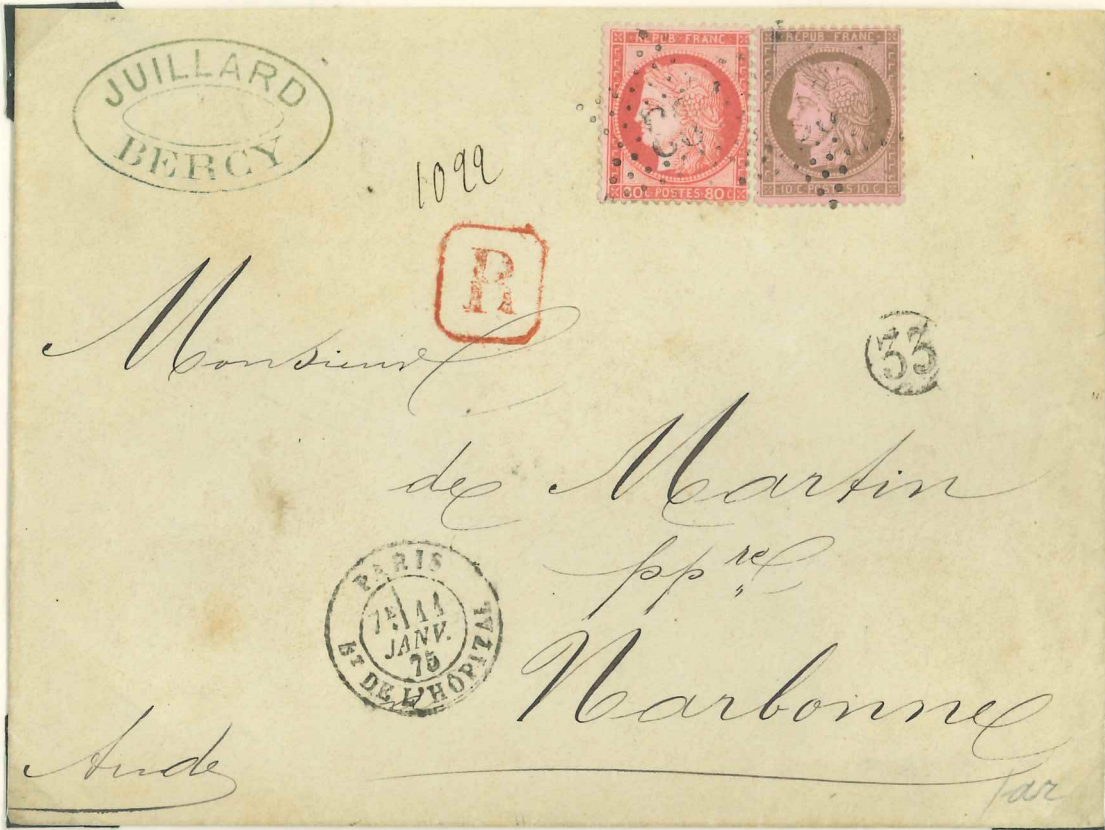 JUILLARD
BERCY
1099
R
REPUB·FRANC
80C POSTES 80C
REPUB·FRANC·
10C POSTES 10C
33
Monsieur
de Martin
ppre
Narbonne
Aude
PARIS
7E 11
JANV.
75
BT DE L'HÔPITAL